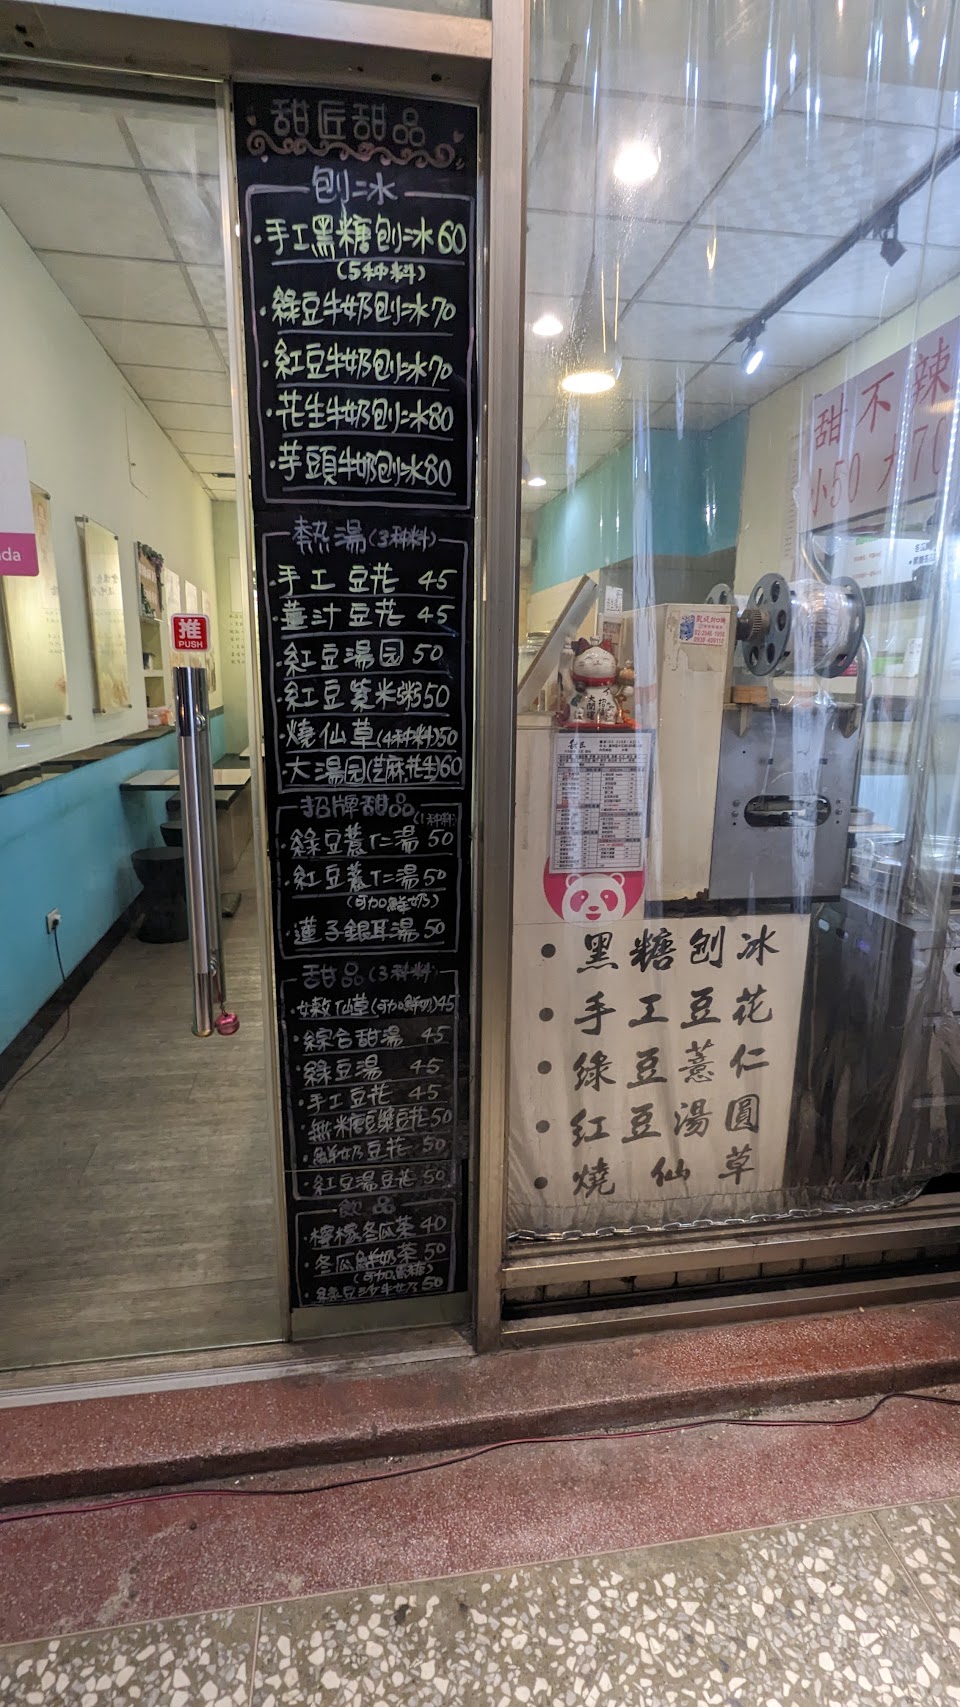 甜匠甜品
刨冰
·手工黑糖刨冰60
(5种料)
·綠豆牛奶刨冰70
·紅豆牛奶刨冰70
·花生牛奶刨冰80
·芋頭牛奶刨冰80
熱湯(3种料)
·手工豆花 45
·薑汁豆花 45
·紅豆湯园 50
·紅豆薏米粥50
·燒仙草(4种料)50
·大湯园(芝麻花生)60
招牌甜品
(1种料)
·綠豆薏仁湯 50
·紅豆薏仁湯50
(可加鮮奶)
·蓮子銀耳湯 50
甜品(3种料)
·嫩仙草(可加鮮奶)45
·綜合甜湯 45
·綠豆湯 45
·手工豆花 45
·無糖豆漿豆花50
·鮮奶豆花 50
·紅豆湯豆花 50
飲品
·檸檬冬瓜茶 40
·冬瓜鮮奶茶 50
(可加黑糖)
·綠豆沙牛奶 50
推
PUSH
nda
甜不辣
小50 大70
甜匠
• 黑糖刨冰
• 手工豆花
• 綠豆薏仁
• 紅豆湯圓
• 燒仙草